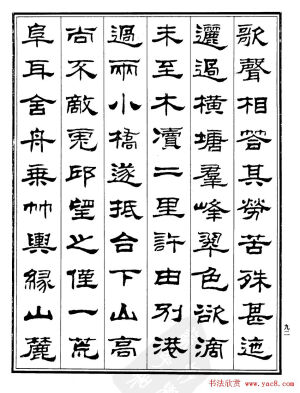 歌聲相答其勞苦殊甚迤
邐過橫塘羣峰翠色欲滴
未至木瀆二里許由別港
過兩小橋遂抵台下山高
尚不敵冤邱望之僅一荒
阜耳舍舟乗竹輿緣山麓
九二
书法欣赏 www.yac8.com